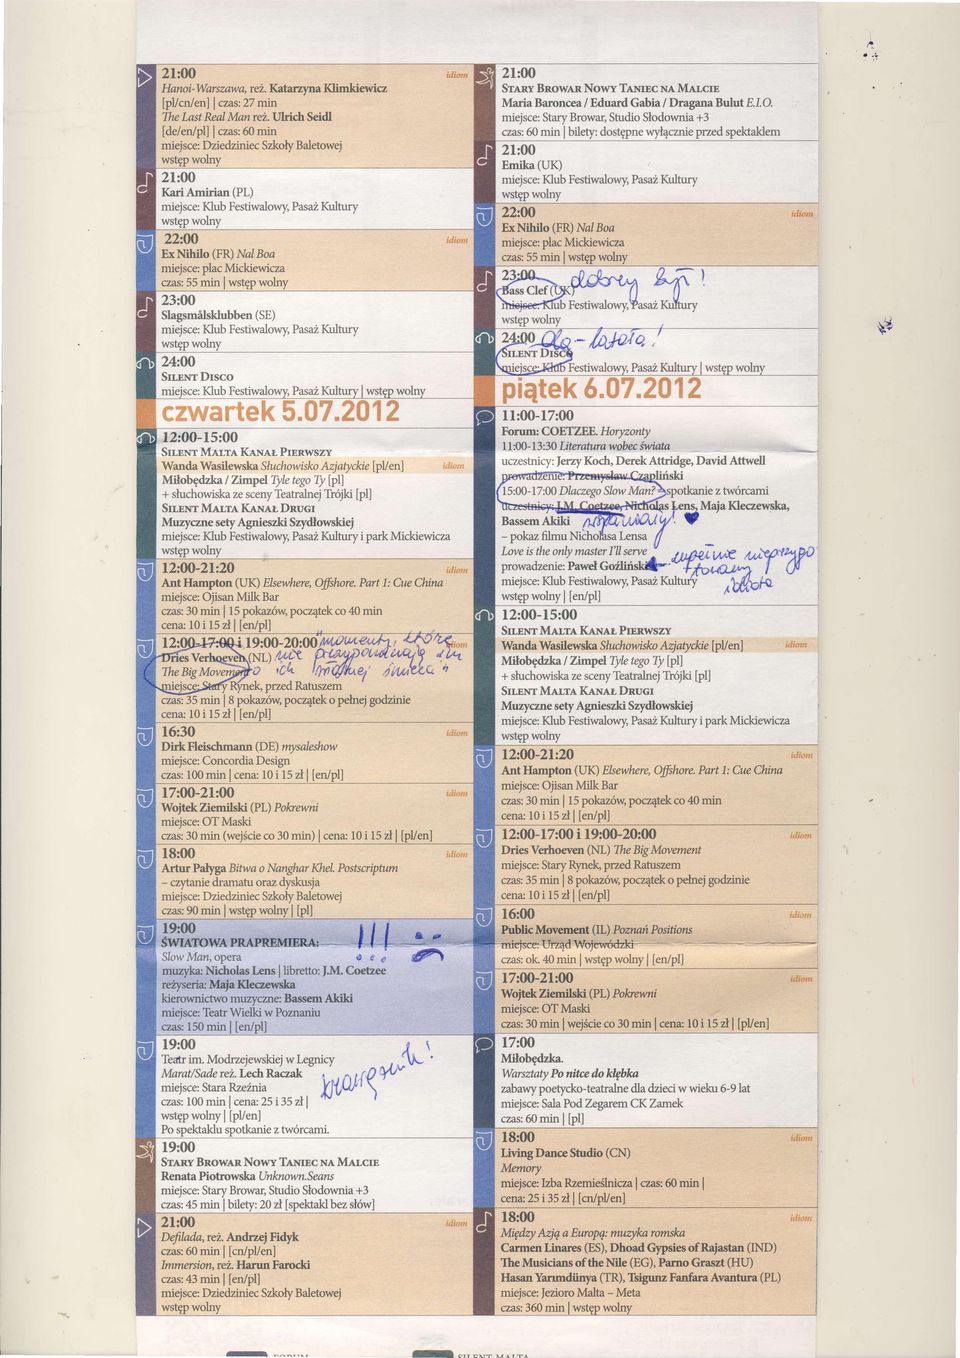 21:00 idiom
Hanoi-Warszawa, reż. Katarzyna Klimkiewicz
[pl/cn/en] | czas: 27 min
The Last Real Man reż. Ulrich Seidl
[de/en/pl] | czas: 60 min
miejsce: Dziedziniec Szkoły Baletowej
wstęp wolny
21:00
Kari Amirian (PL)
miejsce: Klub Festiwalowy, Pasaż Kultury
wstęp wolny
22:00 idiom
Ex Nihilo (FR) Nal Boa
miejsce: plac Mickiewicza
czas: 55 min | wstęp wolny
23:00
Slagsmålsklubben (SE)
miejsce: Klub Festiwalowy, Pasaż Kultury
wstęp wolny
24:00
Silent Disco
miejsce: Klub Festiwalowy, Pasaż Kultury | wstęp wolny
czwartek 5.07.2012
12:00-15:00
Silent Malta Kanał Pierwszy
Wanda Wasilewska Słuchowisko Azjatyckie [pl/en] idiom
Miłobędzka / Zimpel Tyle tego Ty [pl]
+ słuchowiska ze sceny Teatralnej Trójki [pl]
Silent Malta Kanał Drugi
Muzyczne sety Agnieszki Szydłowskiej
miejsce: Klub Festiwalowy, Pasaż Kultury i park Mickiewicza
wstęp wolny
12:00-21:20 idiom
Ant Hampton (UK) Elsewhere, Offshore. Part 1: Cue China
miejsce: Ojisan Milk Bar
czas: 30 min | 15 pokazów, początek co 40 min
cena: 10 i 15 zł | [en/pl]
12:00-17:00 i 19:00-20:00 "momenty, które idiom
Dries Verhoeven (NL) nie przypominają
The Big Movement o ich śmierci"
miejsce: Stary Rynek, przed Ratuszem
czas: 35 min | 8 pokazów, początek o pełnej godzinie
cena: 10 i 15 zł | [en/pl]
16:30 idiom
Dirk Fleischmann (DE) mysaleshow
miejsce: Concordia Design
czas: 100 min | cena: 10 i 15 zł | [en/pl]
17:00-21:00 idiom
Wojtek Ziemilski (PL) Pokrewni
miejsce: OT Maski
czas: 30 min (wejście co 30 min) | cena: 10 i 15 zł | [pl/en]
18:00 idiom
Artur Pałyga Bitwa o Nanghar Khel. Postscriptum
– czytanie dramatu oraz dyskusja
miejsce: Dziedziniec Szkoły Baletowej
czas: 90 min | wstęp wolny | [pl]
19:00
ŚWIATOWA PRAPREMIERA: !!!
Slow Man, opera
muzyka: Nicholas Lens | libretto: J.M. Coetzee
reżyseria: Maja Kleczewska
kierownictwo muzyczne: Bassem Akiki
miejsce: Teatr Wielki w Poznaniu
czas: 150 min | [en/pl]
19:00
Teatr im. Modrzejewskiej w Legnicy
Marat/Sade reż. Lech Raczak
miejsce: Stara Rzeźnia
czas: 100 min | cena: 25 i 35 zł |
wstęp wolny | [pl/en]
Po spektaklu spotkanie z twórcami.
19:00
Stary Browar Nowy Taniec na Malcie
Renata Piotrowska Unknown.Seans
miejsce: Stary Browar, Studio Słodownia +3
czas: 45 min | bilety: 20 zł [spektakl bez słów]
21:00 idiom
Defilada, reż. Andrzej Fidyk
czas: 60 min | [cn/pl/en]
Immersion, reż. Harun Farocki
czas: 43 min | [en/pl]
miejsce: Dziedziniec Szkoły Baletowej
wstęp wolny
21:00
Stary Browar Nowy Taniec na Malcie
Maria Baroncea / Eduard Gabia / Dragana Bulut E.I.O.
miejsce: Stary Browar, Studio Słodownia +3
czas: 60 min | bilety: dostępne wyłącznie przed spektaklem
21:00
Emika (UK)
miejsce: Klub Festiwalowy, Pasaż Kultury
wstęp wolny
22:00 idiom
Ex Nihilo (FR) Nal Boa
miejsce: plac Mickiewicza
czas: 55 min | wstęp wolny
23:00 dobry był!
Bass Clef (UK)
miejsce: Klub Festiwalowy, Pasaż Kultury
wstęp wolny
24:00 Ola - latała!
Silent Disco
miejsce: Klub Festiwalowy, Pasaż Kultury | wstęp wolny
piątek 6.07.2012
11:00-17:00
Forum: COETZEE. Horyzonty
11:00-13:30 Literatura wobec świata
uczestnicy: Jerzy Koch, Derek Attridge, David Attwell
prowadzenie: Przemysław Czapliński
15:00-17:00 Dlaczego Slow Man? – spotkanie z twórcami
uczestnicy: J.M. Coetzee, Nicholas Lens, Maja Kleczewska,
Bassem Akiki wspaniały!
– pokaz filmu Nicholasa Lensa
Love is the only master I'll serve
prowadzenie: Paweł Goźliński zupełnie nieprzygo
miejsce: Klub Festiwalowy, Pasaż Kultury towany
wstęp wolny | [en/pl] idiota
12:00-15:00
Silent Malta Kanał Pierwszy
Wanda Wasilewska Słuchowisko Azjatyckie [pl/en] idiom
Miłobędzka / Zimpel Tyle tego Ty [pl]
+ słuchowiska ze sceny Teatralnej Trójki [pl]
Silent Malta Kanał Drugi
Muzyczne sety Agnieszki Szydłowskiej
miejsce: Klub Festiwalowy, Pasaż Kultury i park Mickiewicza
wstęp wolny
12:00-21:20 idiom
Ant Hampton (UK) Elsewhere, Offshore. Part 1: Cue China
miejsce: Ojisan Milk Bar
czas: 30 min | 15 pokazów, początek co 40 min
cena: 10 i 15 zł | [en/pl]
12:00-17:00 i 19:00-20:00 idiom
Dries Verhoeven (NL) The Big Movement
miejsce: Stary Rynek, przed Ratuszem
czas: 35 min | 8 pokazów, początek o pełnej godzinie
cena: 10 i 15 zł | [en/pl]
16:00 idiom
Public Movement (IL) Poznań Positions
miejsce: Urząd Wojewódzki
czas: ok. 40 min | wstęp wolny | [en/pl]
17:00-21:00 idiom
Wojtek Ziemilski (PL) Pokrewni
miejsce: OT Maski
czas: 30 min | wejście co 30 min | cena: 10 i 15 zł | [pl/en]
17:00
Miłobędzka.
Warsztaty Po nitce do kłębka
zabawy poetycko-teatralne dla dzieci w wieku 6-9 lat
miejsce: Sala Pod Zegarem CK Zamek
czas: 60 min | [pl]
18:00 idiom
Living Dance Studio (CN)
Memory
miejsce: Izba Rzemieślnicza | czas: 60 min |
cena: 25 i 35 zł | [cn/pl/en]
18:00 idiom
Między Azją a Europą: muzyka romska
Carmen Linares (ES), Dhoad Gypsies of Rajastan (IND)
The Musicians of the Nile (EG), Parno Graszt (HU)
Hasan Yarımdünya (TR), Tsigunz Fanfara Avantura (PL)
miejsce: Jezioro Malta – Meta
czas: 360 min | wstęp wolny